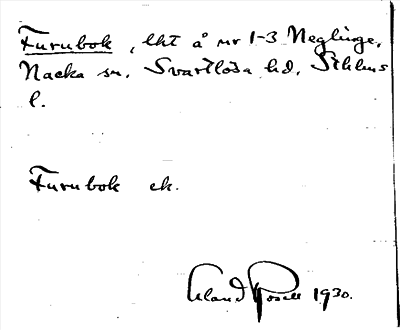 Furubok, lht å nr 1-3 Neglinge,
Nacka sn, Svartlösa hd, Sthlms
l.
Furubok ek.
Erland Rosell 1930.